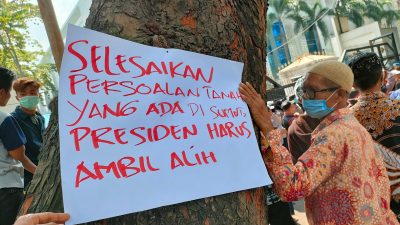 SELESAIKAN
PERSOALAN TANAH
YANG ADA DI SUMUT
PRESIDEN HARUS
AMBIL ALIH